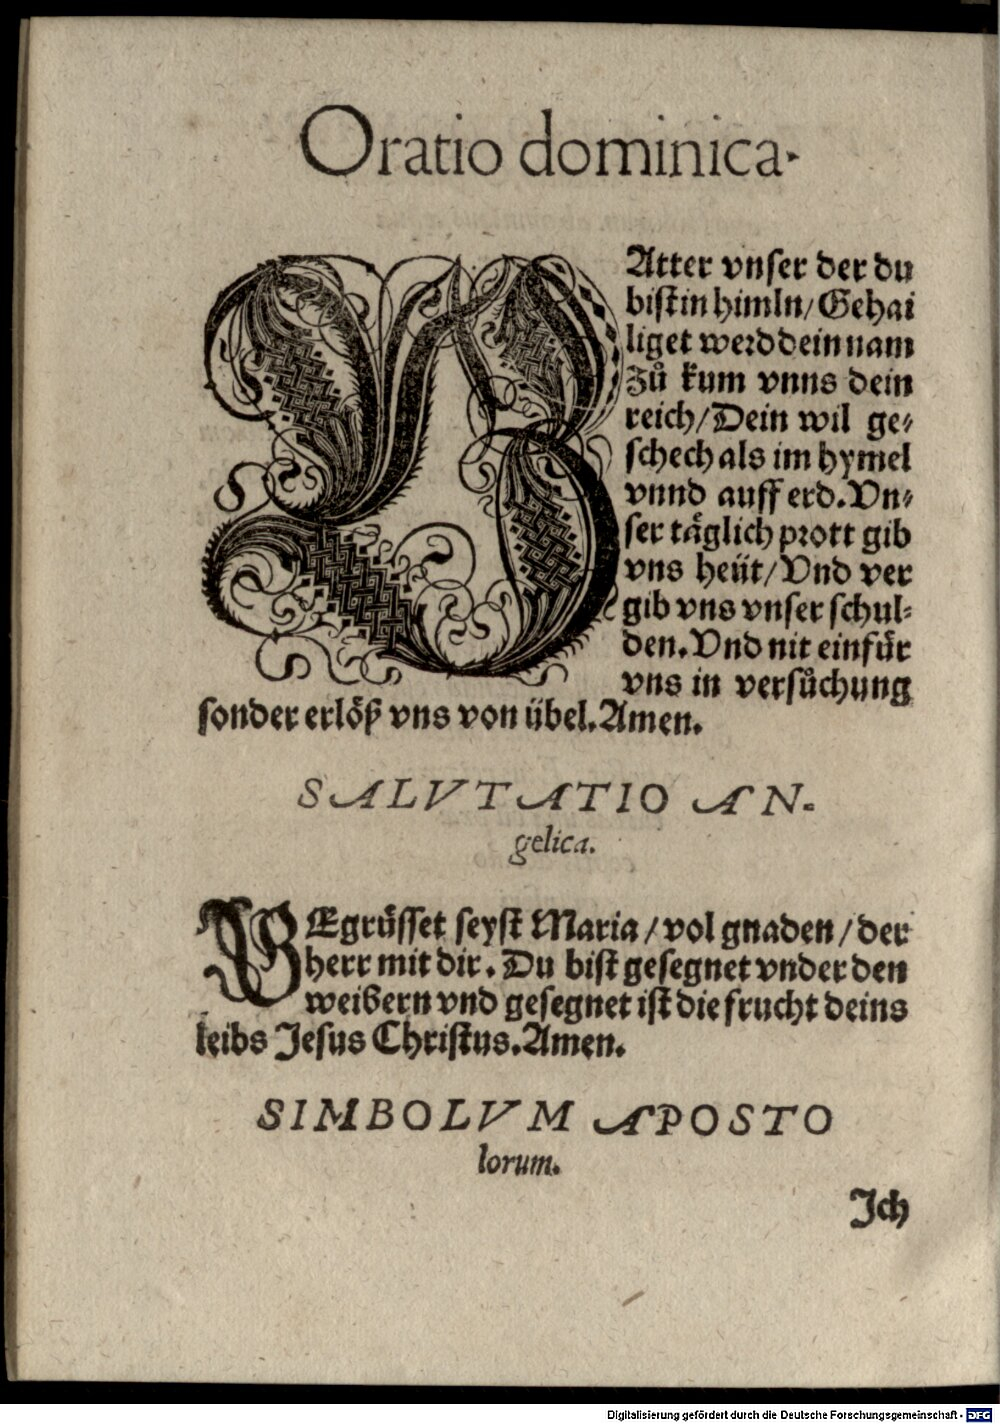 Oratio dominica.
VAtter vnser der du
bist in himln/Gehai
liget werd dein nam
Zů kum vnns dein
reich/Dein wil ge-
schech als im hymel
vnnd auff erd. Vn-
ser täglich prott gib
vns heüt/Vnd ver
gib vns vnser schul-
den. Vnd nit einfür
vns in versůchung
sonder erlöß vns von übel. Amen.
SALVTATIO AN-
gelica.
GEgrüsset seyst Maria/vol gnaden/der
herr mit dir. Du bist gesegnet vnder den
weibern vnd gesegnet ist die frucht deins
leibs Jesus Christus. Amen.
SIMBOLVM APOSTO
lorum.
Ich
Digitalisierung gefördert durch die Deutsche Forschungsgemeinschaft - DFG